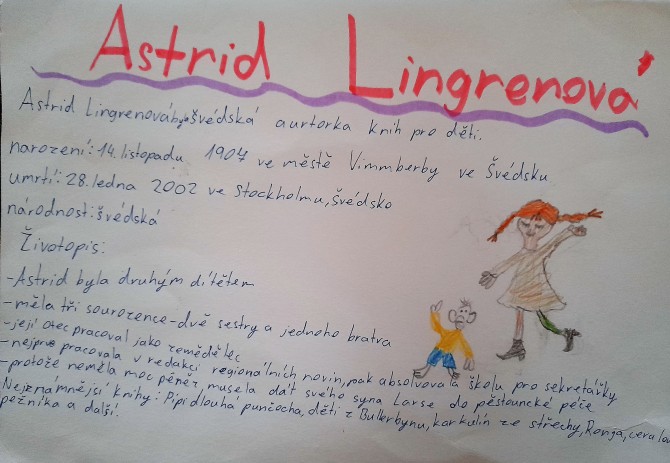 Astrid Lingrenová
Astrid Lingrenová byla švédská aurtorka knih pro děti.
narození: 14. listopadu 1907 ve městě Vimmberby ve Švédsku
umrtí: 28. ledna 2002 ve Stockholmu, švédsko
národnost: švédská
Životopis:
-Astrid byla druhým dítětem
-měla tři sourozence-dvě sestry a jednoho bratra
-její otec pracoval jako zemědělec
-nejprve pracovala v redakci regionálních novin, pak absolvovala školu pro sekretářky
-protože neměla moc peněz, musela dát svého syna Larse do pěstouncké péče
Nejznámnější knihy: Pipi dlouhá punčocha, děti z Bullerbynu, karkulín ze střechy, Ronja,
pežníka a další.